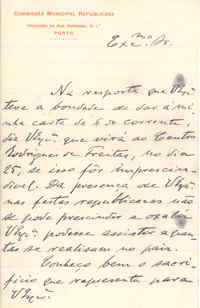 COMMISSÃO MUNICIPAL REPUBLICANA
PORTO
Ex.mo Sr.
Na resposta que V. Ex.ª
teve a bondade de dar á mi-
nha carta de 6 do corrente,
diz V. Ex.ª que virá ao Centro
Rodrigues de Freitas, no dia
25, se isso fôr imprescin-
divel. Da presença de V. Ex.ª
nas festas republicanas não
se pode prescindir e oxalá
V. Ex.ª podesse assistir a quan-
tas se realisam no paiz.
Conheço bem o sacri-
ficio que representa para
V. Ex.ª